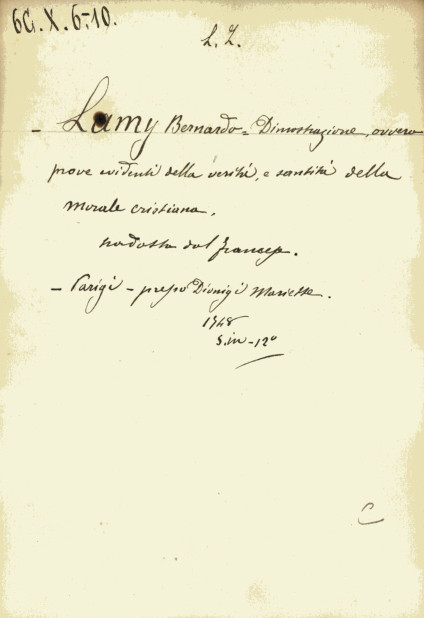 6G.X.6-10.
L. I.
- Lamy Bernardo = Dimostrazione, ovvero
prove evidenti della verità, e santità della
morale cristiana,
tradotta dal francese.
- Parigi - presso Dionigi Mariette.
1748
5. in - 12°
C